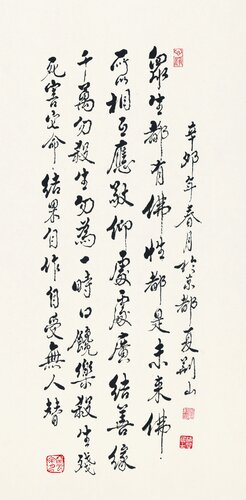 辛卯年春月於京都夏荊山
眾生都有佛性都是未來佛
所以相互應敬仰處處廣結善緣
千萬勿殺生勿為一時口饞樂殺生殘
死害它命結果自作自受無人替